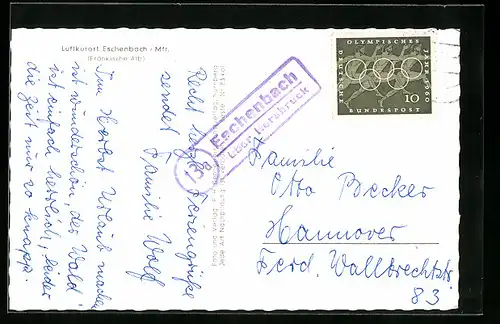 Luftkurort Eschenbach - Mfr.
(Fränkische Alb)
Im Herbst Urlaub machen
ist wunderschön, der Wald
ist einfach herrlich, leider
die Zeit nur zu knapp.
Recht herzl. Feriengrüße
sendet
Familie Wolf
(13
Eschenbach
über Hersbruck
OLYMPISCHES
JAHR 1960
DEUTSCHE
BUNDESPOST
10
Familie
Otto Becker
Hannover
Ferd. Wallbrechtstr
83